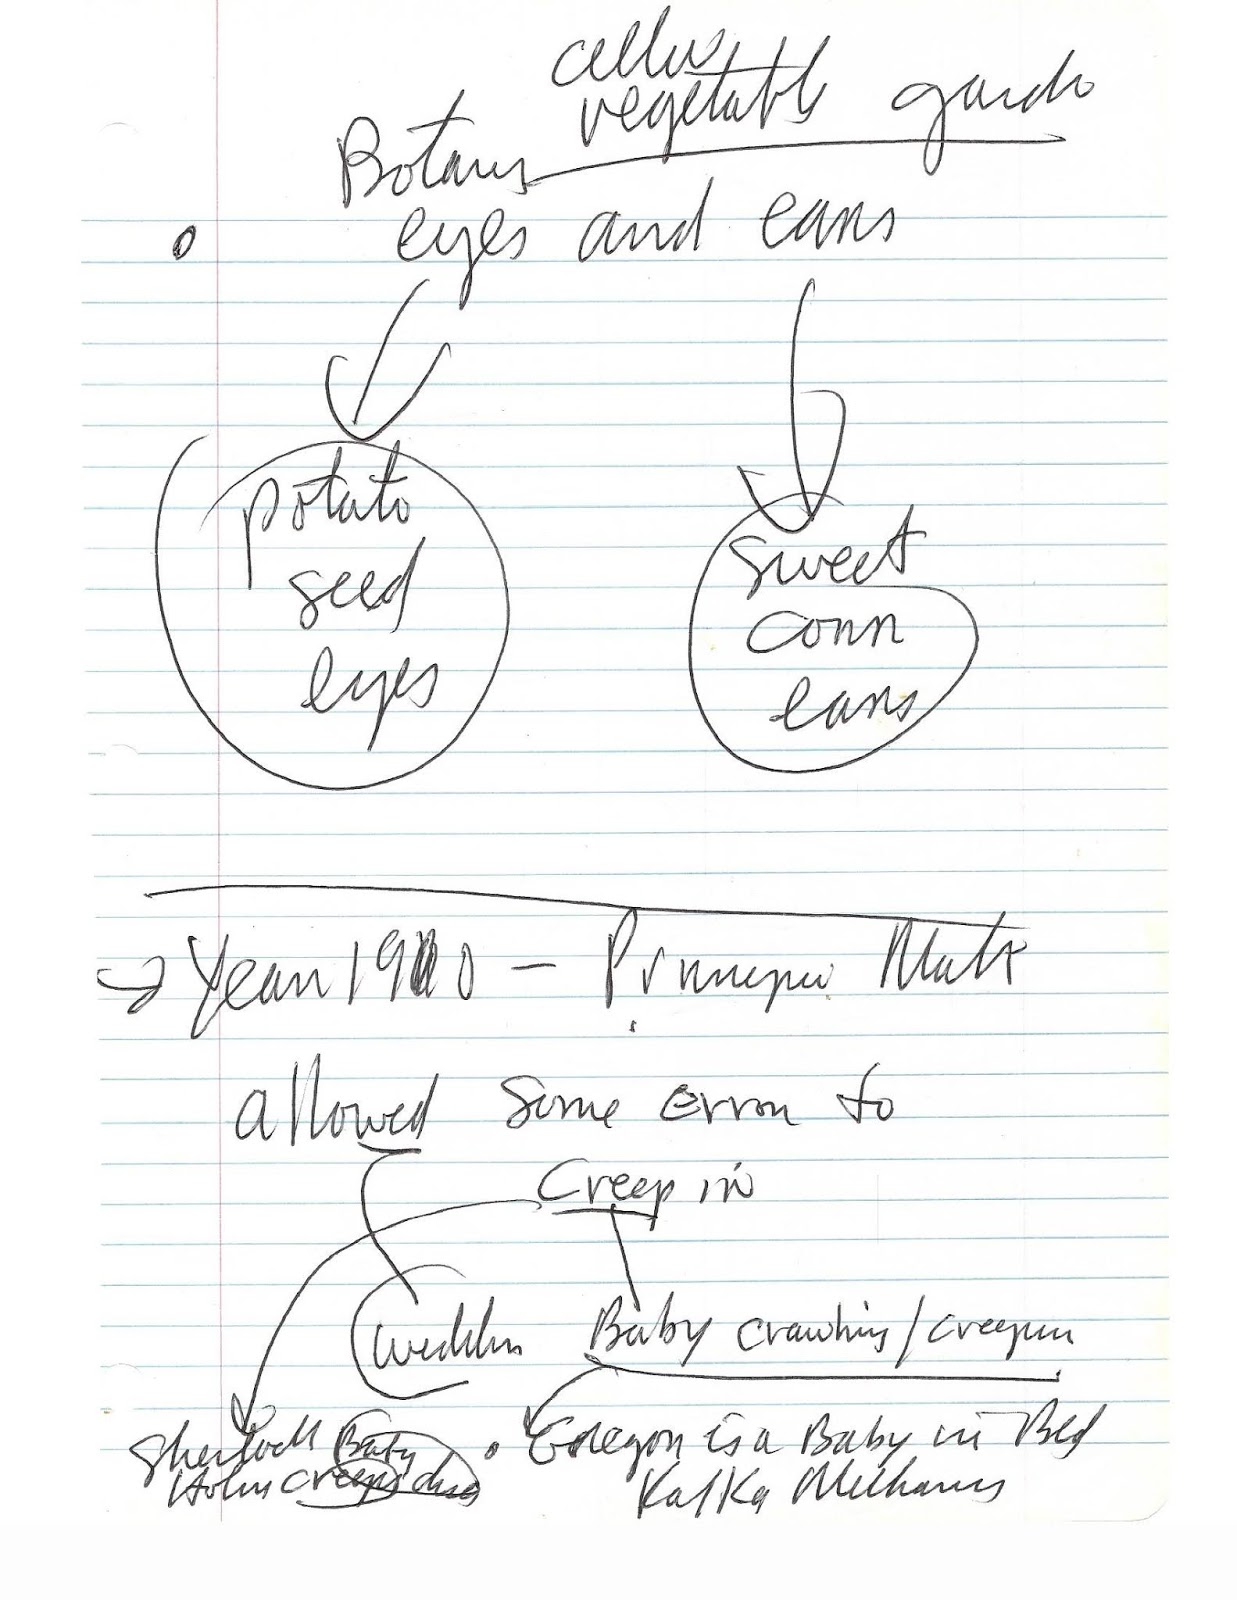 cellus
vegetable garde
Botany
eyes and ears
potato
seed
eyes
sweet
corn
ears
Year 1910 – Principia Math
allowed some error to
creep in
Baby crawling/creepin
Sherlock Baby
Holms creeps
Gregor is a Baby in Bed
Kafka